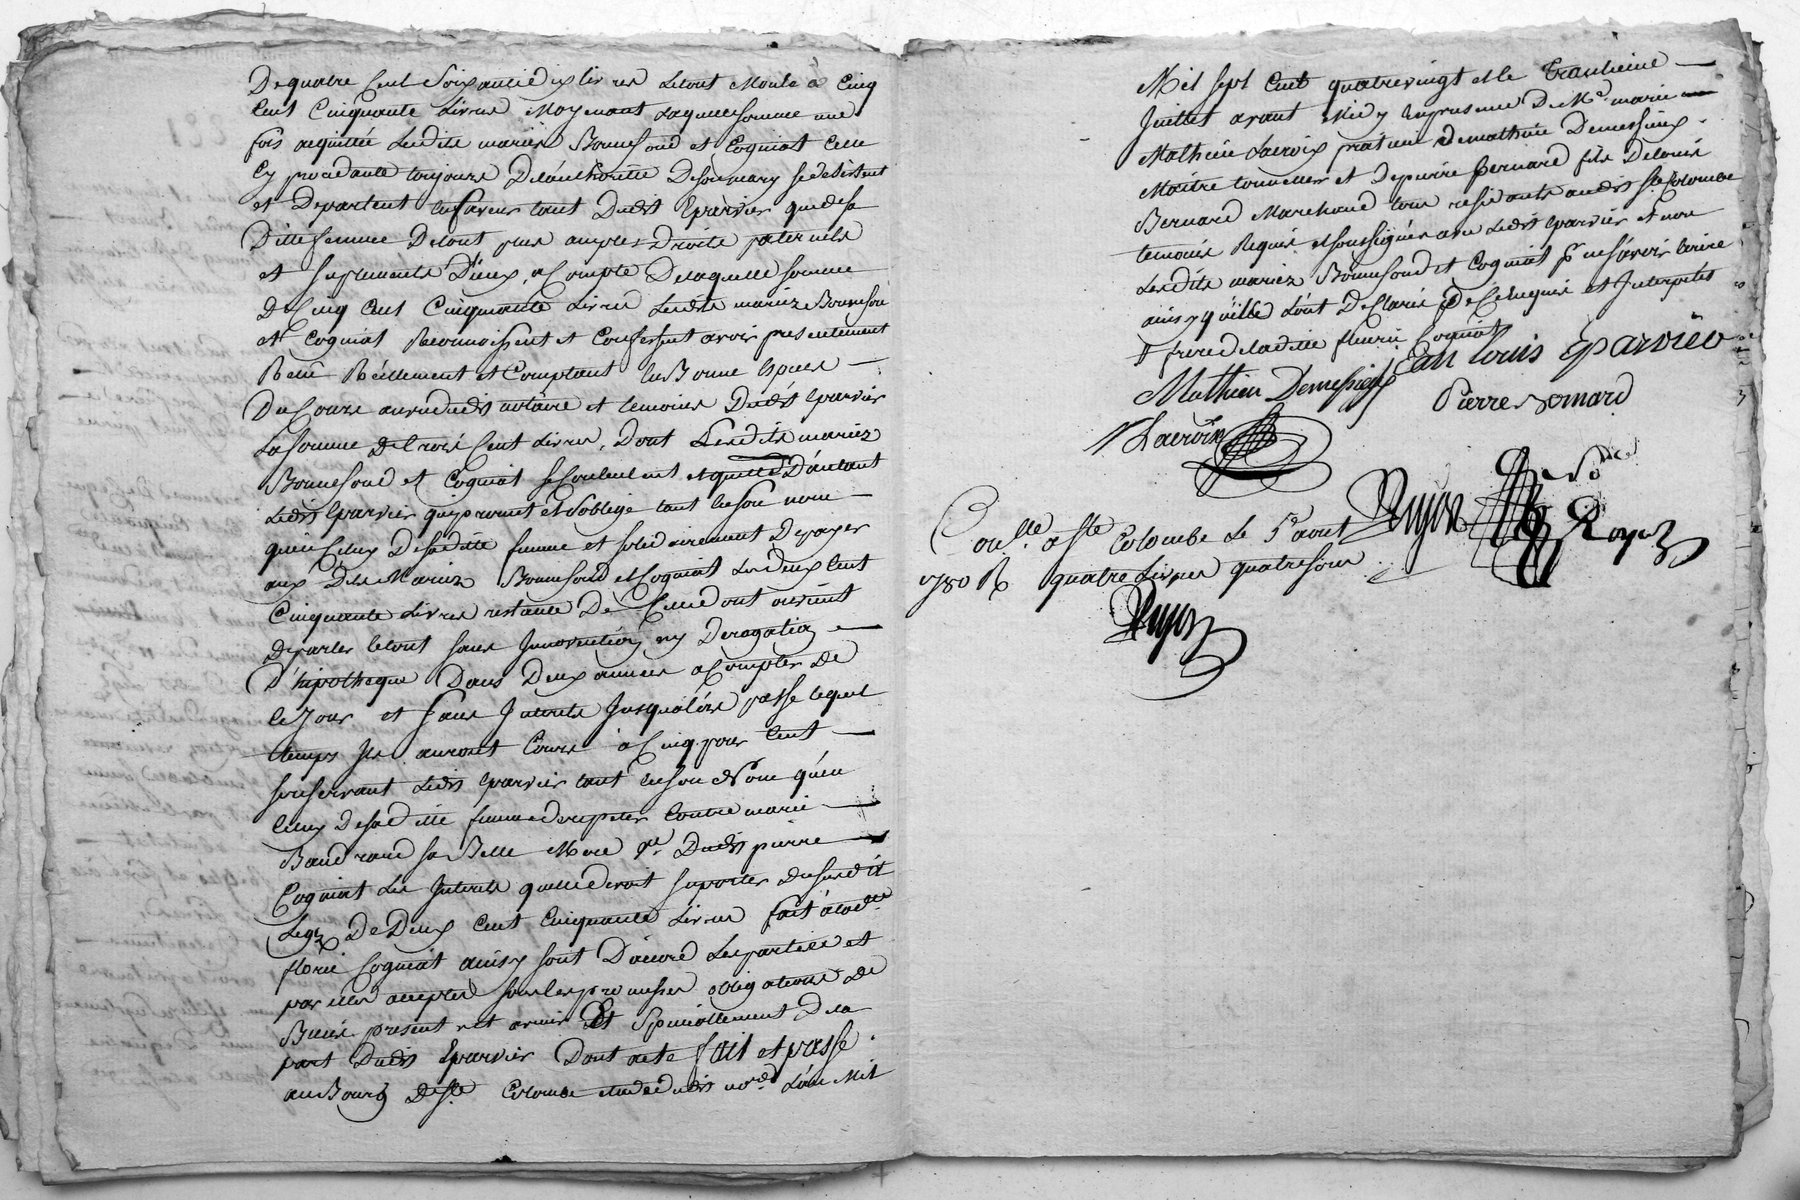 De quatre Cent Soixante dix livres Letout Monte a Cinq
Cent Cinquante Livres Moyenant Laquelle somme une
fois acquittée Lesdits mariés Bonnefond et Cogniat Celle
Cy procedante toujours De lauthorité De son mary se desistent
et Departent en faveur tant Dudit Eparvier que de sa
Ditte femme De tout plus amples Droits paternels
et suplements D'iceux, a Compte De laquelle somme
De Cinq Cent Cinquante Livres Lesdits mariez Bonnefond
et Cogniat Reconnoissent et Confessent avoir presentement
Reçu Réellement et Comptant en Bonne Especes
Du Cours au vu dudit notaire et temoins Dudit Eparvier
La somme de trois Cent Livres, Dont Lesdits mariez
Bonnefond et Cogniat se contentent et quittent D'autant
Ledit Eparvier qui promet et s'oblige tant en son nom
qu'en Celuy De sa ditte femme et solidairement De payer
aux Dits Mariez Bonnefond et Cogniat Les deux Cent
Cinquante Livres restante De Celle dont on vient
De parler le tout sans Innovation ny Derogation
D'hipotheque Dans Deux années a Compter De
Ce Jour et sans Interets Jusqu'alors passé lequel
temps Ils auront Cours à Cinq pour Cent
se reservant Ledit Eparvier tant en son Nom qu'en
Celuy De sa ditte femme de repeter Contre marie
Baudrand sa Belle Mere Dudit pierre
Cogniat Les Interets quelle devoit suporter du susdit
Legs De Deux Cent Cinquante Livres fait a lad.te
florie Cogniat ainsy sont D'acord Les parties et
par elles accepté sous les promesses obligations De
Biens present et avenir Et Speciallement De la
part Dudit Eparvier Dont acte fait et passé
au Bourg De S.te Colombe etude dudit no.re L'an Mil
Mil sept Cent quatrevingt et le Trantieme
Juillet avant Midy En presence De M.e marie
Mathieu Lacroix praticien de mathieu Demessieux
Maitre tonnelier et De pierre Bernard fils De louis
Bernard Marchand tous residants audit S.te Colombe
temoins Requis et soussignés avec Ledit Eparvier et non
Lesdits mariez Bonnefond et Cogniat p.r ne sçavoir Ecrire
ainsy qu'ils l'ont Declaré De Ce Enquis et Interpelés
frere de laditte fleurie Cogniat
Jean louis Eparvier
Mathieu Demessieux
Pierre Bernard
Lacroix
Royer
Con.lle a S.te Colombe Le 5.e aout
1780 R quatre Livres quatre sous